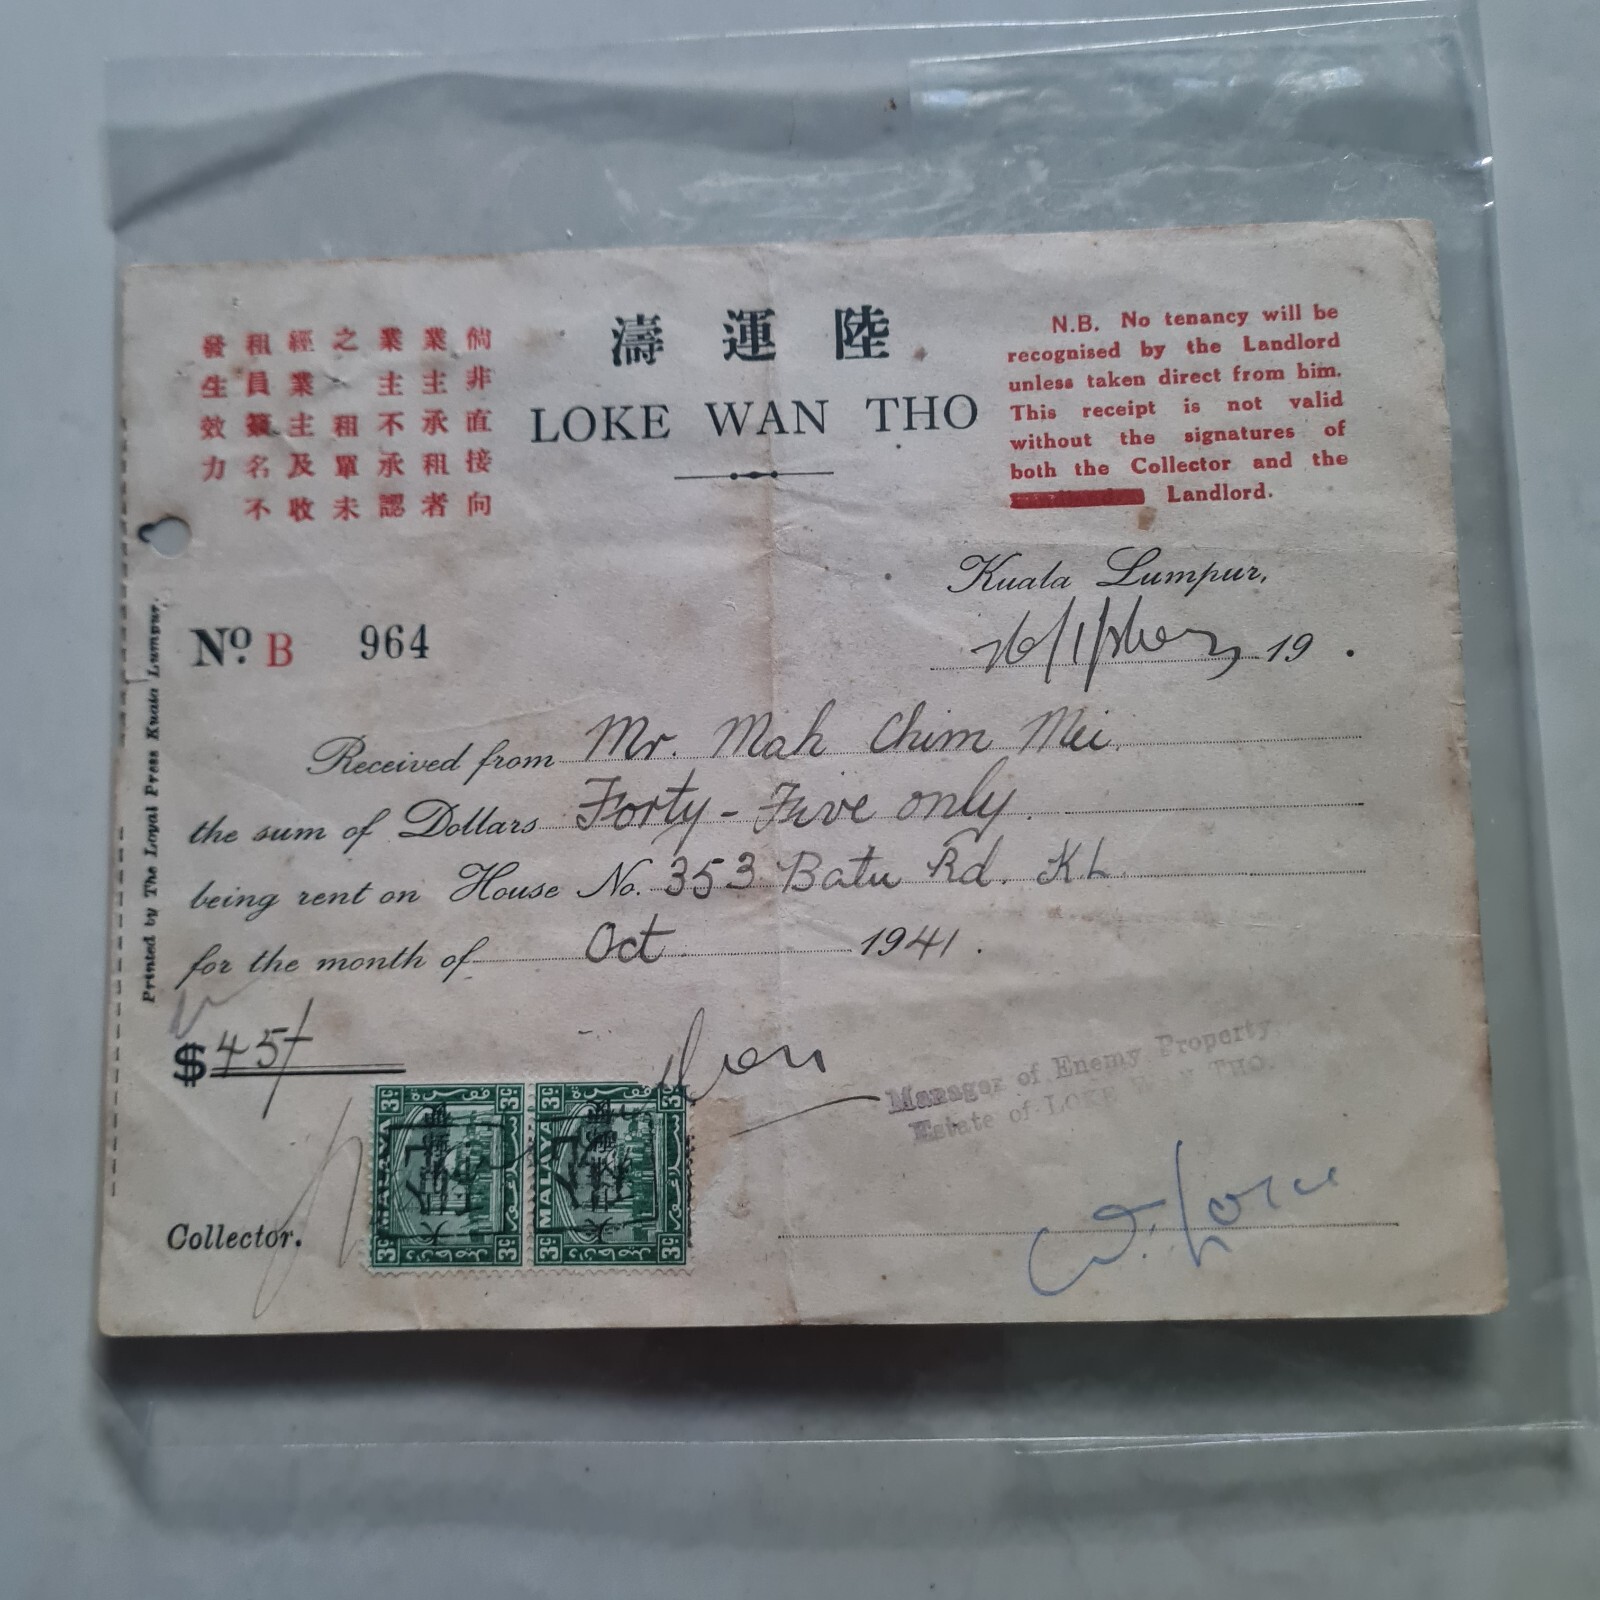 倘非直接向
業主承租者
業主不承認
之 租單未
經業主及收
租員簽名不
發生效力
濤 運 陸
LOKE WAN THO
N.B. No tenancy will be
recognised by the Landlord
unless taken direct from him.
This receipt is not valid
without the signatures of
both the Collector and the
Landlord.
Kuala Lumpur,
19 .
No. B 964
Received from Mr. Mah Chim Mei.
the sum of Dollars Forty-Five only.
being rent on House No. 353 Batu Rd. KL.
for the month of Oct 1941.
$45/
Manager of Enemy Property.
Estate of LOKE WAN THO.
Collector.
Printed by The Loyal Press Kuala Lumpur.
3c MALAYA 3c
3c MALAYA 3c